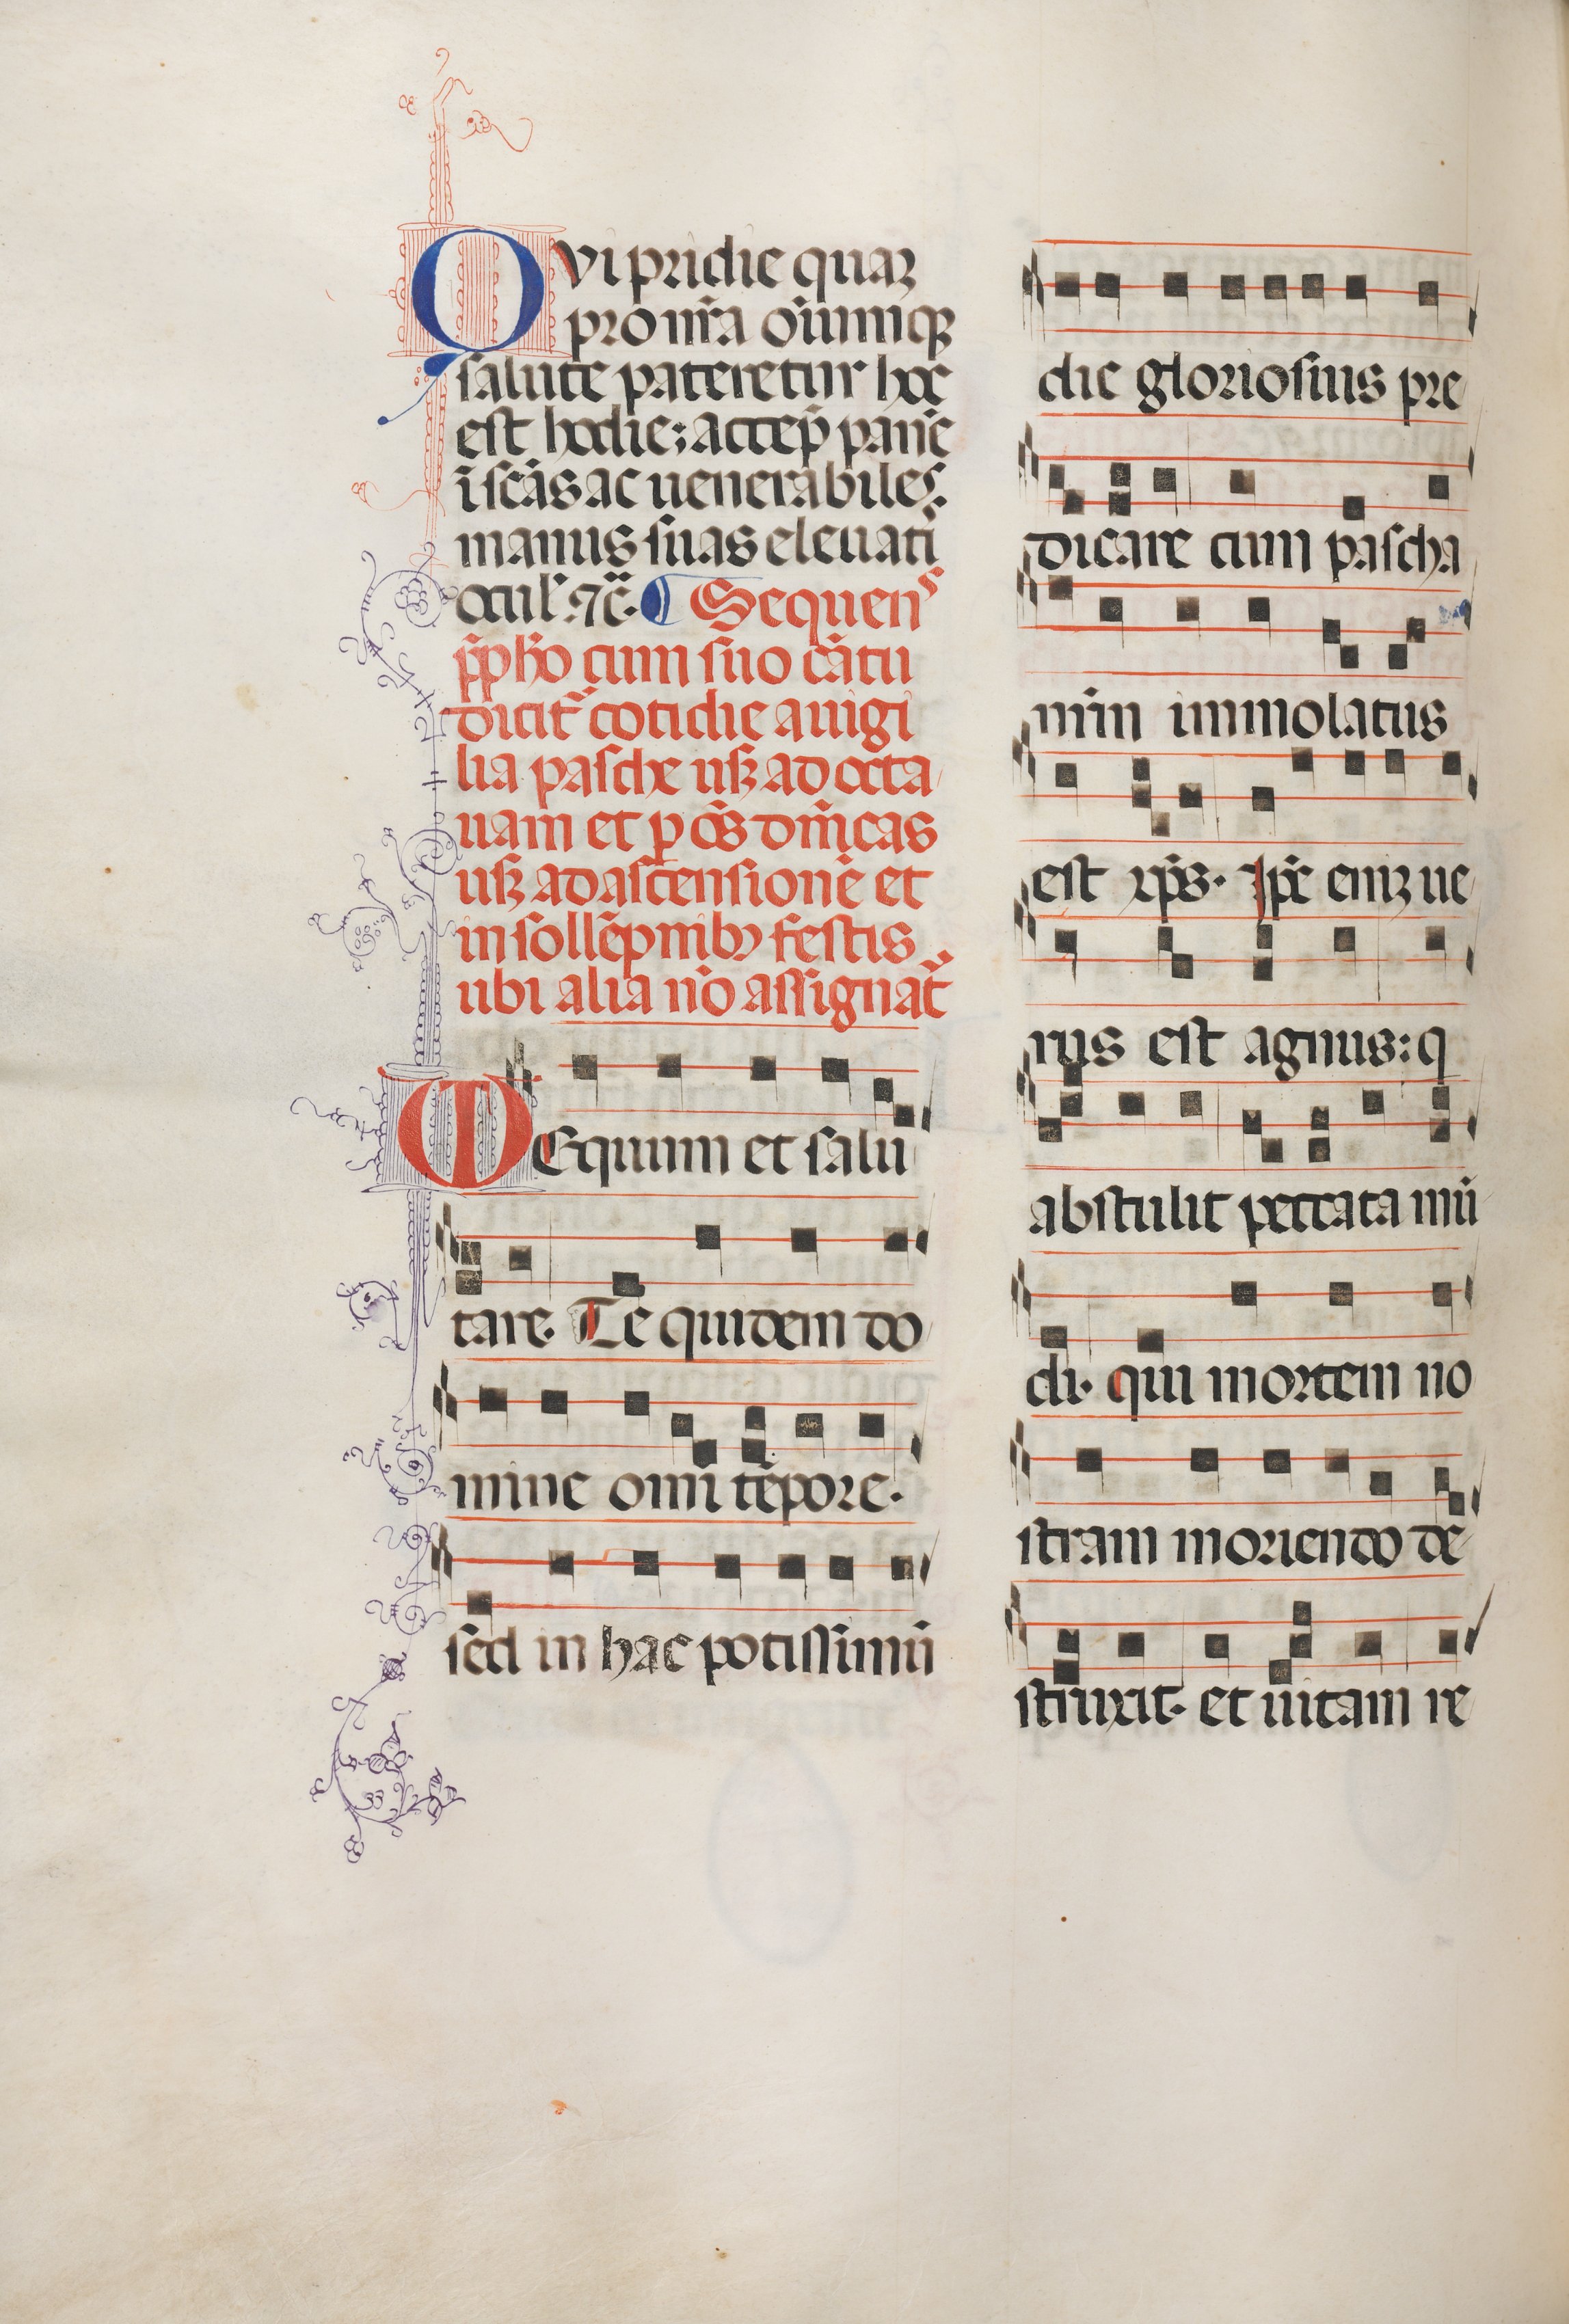 QVi pridie quaȝ
pro nr̄a oı̄umqꝫ
salute pateretur hoc
est hodie; accep̄ panē
ī sc̄as ac uenerabiles
manus suas eleuatī
ocul' ⁊c̄. ¶ Sequens
p̄pħo cum suo cātu
dicit᷑ cotidie a uigi
lia pasche usꝫ ad octa
uam et p o͞s dn̄icas
usꝫ ad ascensionē et
in sollēpnibꝫ festis
ubi alia nō assignat᷑
EQuum et salu
tare. Te quidem do
mine omī tēpore.
sed in hac potissimū
die gloriosius pre
dicare cum pascha
nr̄m immolatus
est xp̄s. Ip̄e enīꝫ ue
rus est agnus: q
abstulit peccata mū
di. qui mortem no
stram moriendo de
struxit. et uitam re